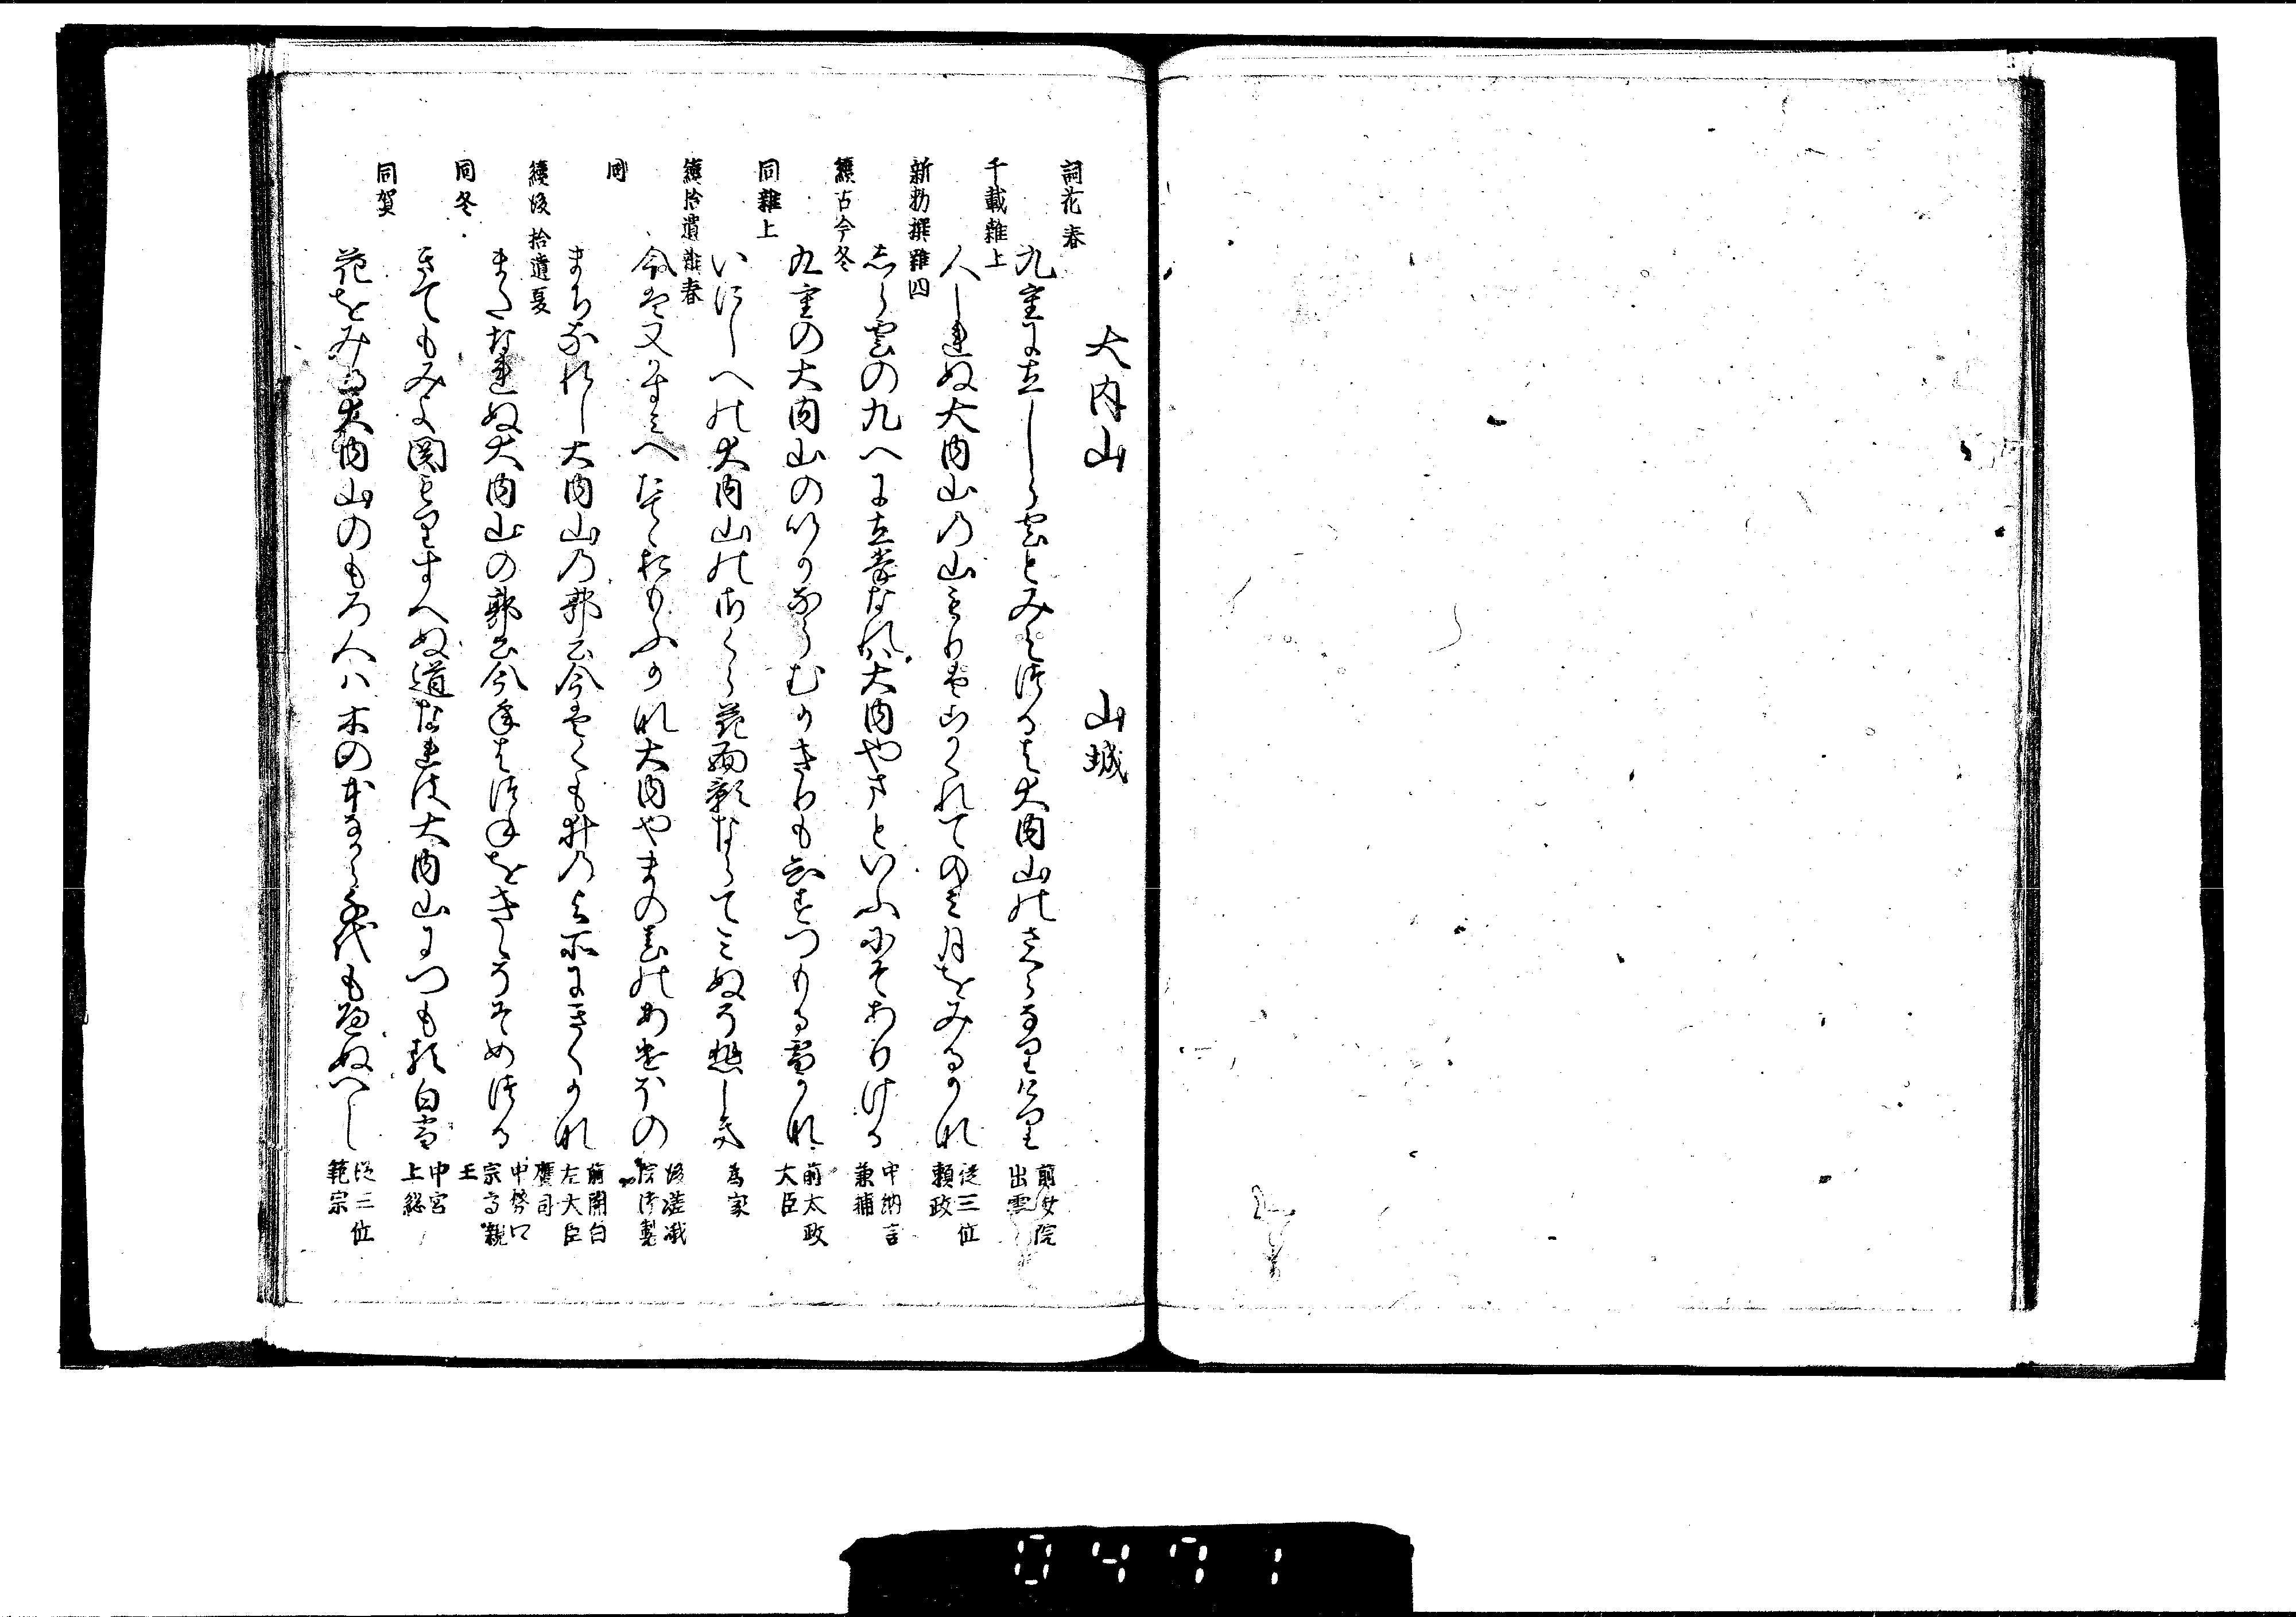 大内山　山城
詞花春
九重に立しら雲とみえつるは大内山のさくらなりけり　前女院出雲
千載雑上
人しれぬ大内山の山もりは山かくれてのみ月をみるかな　従三位頼政
新勅撰雑四
しら雲の九へに立峯なれは大内やまといふにそありける　中納言兼輔
続古今冬
九重の大内山のいかならむかきりもしらすつもる雪かな　前太政大臣
同雑上
いにしへの大内山のさくら花面影ならてみぬそ悲しき　為家
続拾遺雑春
今は又かすみへたてゝおもふかな大内やまの花のあけほの　後嵯峨院御製
同
まちなれし大内山の郭公今はくも井のよ所にきくかな　前関白左大臣鷹司
続後拾遺夏
またなれぬ大内山の郭公今年はつねをきゝそそめつる　中務卿宗尊親王
同冬
きてもみよ関もりすへぬ道なれは大内山につもる白雪　中宮上総
同賀
花をみる大内山のもろ人ハ木の本なから千代もへぬへし　従三位範宗
0471